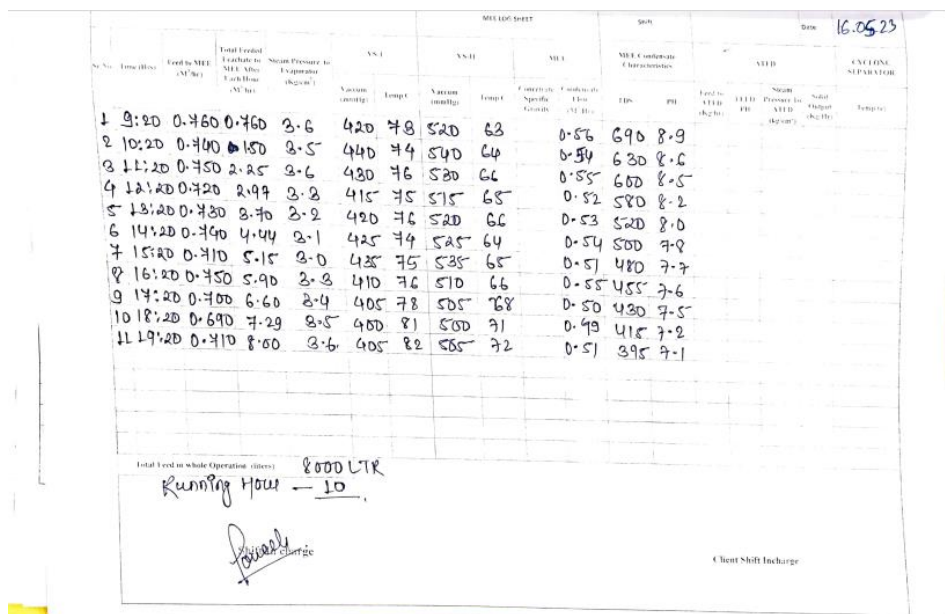 MEE LOG SHEET
Shift
Date 16.05.23
Sr No. Time (Hrs) Feed to MEE (M³/hr) Total Feeded Leachate to MEE After Each Hour (M³/hr) Steam Pressure to Evaporator (Kg/cm²) VS-I VS-II MEE MEE Condensate Characteristics ATFD CYCLONE SEPARATOR
Vaccum (mmHg) Temp C Vaccum (mmHg) Temp C Concentrate Specific Growth Condensate Flow (M³/Hr) TDS PH Feed to ATFD (Kg/hr) ATFD PH Steam Pressure to ATFD (kg/cm²) Solid Output (kg/Hr) Temp (c)
1 9:20 0.760 0.760 3.6 420 78 520 63 0.56 690 8.9
2 10:20 0.740 1.50 3.5 440 74 540 64 0.54 630 8.6
3 11:20 0.750 2.25 3.6 430 76 530 66 0.55 600 8.5
4 12:20 0.720 2.97 3.3 415 75 515 65 0.52 580 8.2
5 13:20 0.730 3.70 3.2 420 76 520 66 0.53 520 8.0
6 14:20 0.740 4.44 3.1 425 74 525 64 0.54 500 7.8
7 15:20 0.710 5.15 3.0 435 75 535 65 0.51 480 7.7
8 16:20 0.750 5.90 3.3 410 76 510 66 0.55 455 7.6
9 17:20 0.700 6.60 3.4 405 78 505 68 0.50 430 7.5
10 18:20 0.690 7.29 3.5 400 81 500 71 0.49 415 7.2
11 19:20 0.710 8.00 3.6 405 82 505 72 0.51 395 7.1
Total Feed in whole Operation (liters) 8000 LTR
Running Hour — 10
Shift Incharge
Client Shift Incharge